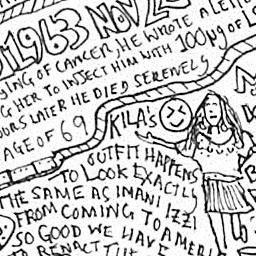 1963 NOV 2
YING OF CANCER, HE WROTE A LETT
G HER TO INJECT HIM WITH 100µg OF L
OURS LATER HE DIED SERENELY
AGE OF 69
KILA'S
OUTFIT HAPPENS
TO LOOK EXACTLY
THE SAME AS IMANI IZZI
FROM COMING TO AMERI
SO GOOD WE HAVE
TO REENACT THE